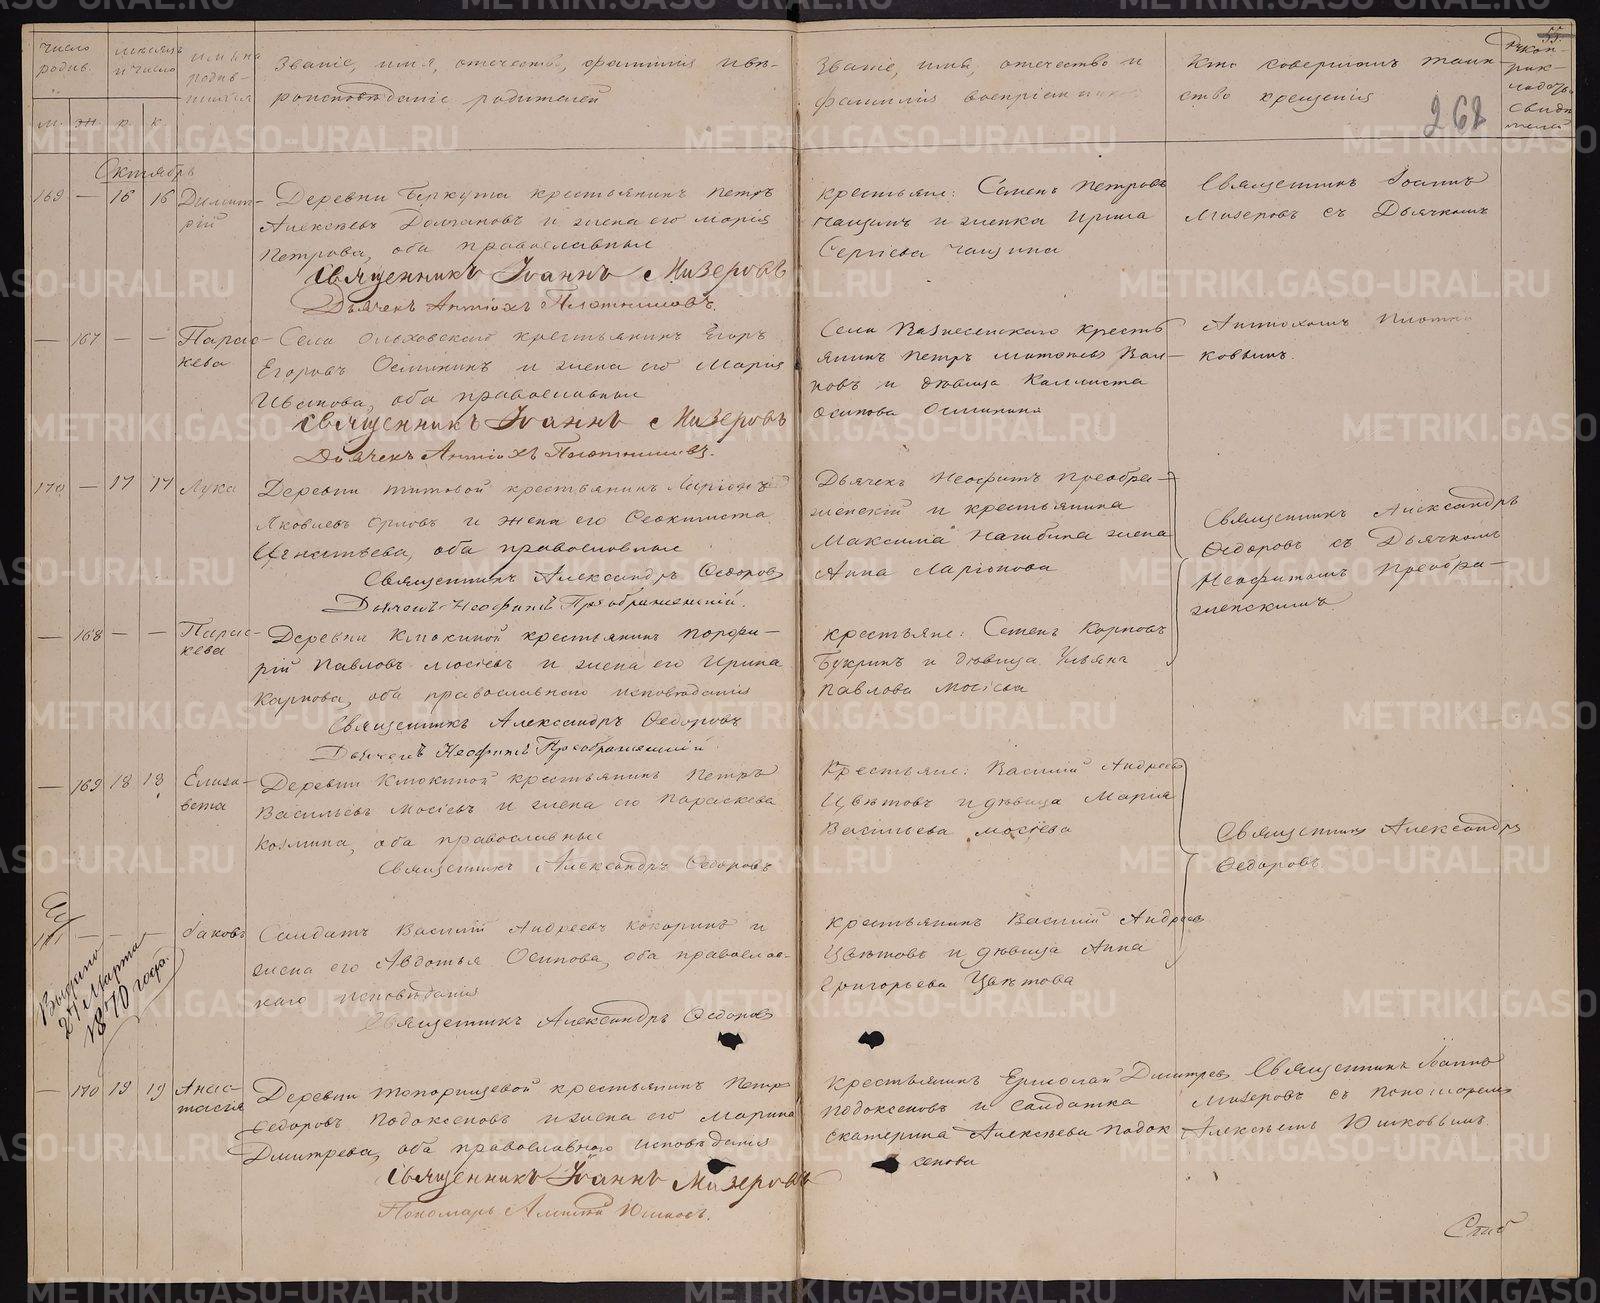 число родив.
мѣсяцъ и число
имяна родив-шихся
Званіе, имя, отечество, фамилія и вѣ-
роисповѣданіе родителей
Званіе, имя, отечество и
фамилія воспріемниковъ
Кто совершалъ таин-
ство крещенія
Рукоприкладство свидѣтелей
м. ж. р. к.
55.
262
Октябрь
169 — 16 16 Димит-
рій
Деревни Беркута крестьянинъ Петръ
Алексѣевъ Долгановъ и жена его Марія
Петрова, оба православные
Священникъ Іоаннъ Мизеровъ
Дьячекъ Антіохъ Плотниковъ.
крестьяне: Семенъ Петровъ
Чащинъ и женка Ирина
Сергіева Чащина
Священникъ Іоаннъ
Мизеровъ съ Дьячкомъ
— 167 — — Парас-
кева
Села Ольховскаго крестьянинъ Егоръ
Егоровъ Осининъ и жена его Марія
Иванова, оба православные
Священникъ Іоаннъ Мизеровъ
Дьячекъ Антіохъ Плотниковъ.
Села Вознесенскаго кресть
янинъ Петръ
и дѣвица Каллиста
Осипова Осинина
Антіохомъ Плотни
ковымъ.
170 — 17 17 Лука
Деревни Титовой крестьянинъ Ларіонъ
Яковлевъ Орловъ и жена его Ѳеоктиста
Игнатьева, оба православные
Священникъ Александръ Ѳедоровъ
Дьячекъ Неофитъ Преображенскій.
Дьячекъ Неофитъ Преобра-
женскій и крестьянина
Максима Нагибина жена
Анна Ларіонова
Священникъ Александръ
Ѳедоровъ съ Дьячкомъ
Неофитомъ Преобра-
женскимъ.
— 168 — — Парас-
кева
Деревни Клюкиной крестьянинъ Порфи-
рій Павловъ Мосѣевъ и жена его Ирина
Карпова, оба православнаго исповѣданія
Священникъ Александръ Ѳедоровъ
Дьячекъ Неофитъ Преображенскій.
крестьяне: Семенъ Карповъ
Букринъ и дѣвица Ульяна
Павлова Мосѣева
— 169 18 18 Елиза-
вета
Деревни Клюкиной крестьянинъ Петръ
Васильевъ Мосѣевъ и жена его Параскева
Козмина, оба православные
Священникъ Александръ Ѳедоровъ
Крестьяне: Василій Андреевъ
Цвѣтовъ и дѣвица Марія
Васильева Мосѣева
Священникъ Александръ
Ѳедоровъ.
171 — — — Іаковъ
Солдатъ Василій Андреевъ Кокоринъ и
жена его Авдотья Осипова, оба православ-
наго исповѣданія
Священникъ Александръ Ѳедоровъ
крестьянинъ Василій Андреевъ
Цвѣтовъ и дѣвица Анна
Григорьева Цвѣтова
Выдано
27 Марта
1870 года.
— 170 19 19 Анас-
тасія
Деревни Топорищевой крестьянинъ Петръ
Ѳедоровъ Подоксеновъ и жена его Марина
Дмитрева, оба православнаго исповѣданія
Священникъ Іоаннъ Мизеровъ
Пономарь Алексѣй Юшковъ.
крестьянинъ Ермолай Дмитревъ
Подоксеновъ и солдатка
Екатерина Алексѣева Подок
сенова
Священникъ Іоаннъ
Мизеровъ съ Пономаремъ
Алексѣемъ Юшковымъ.
METRIKI.GASO-URAL.RU